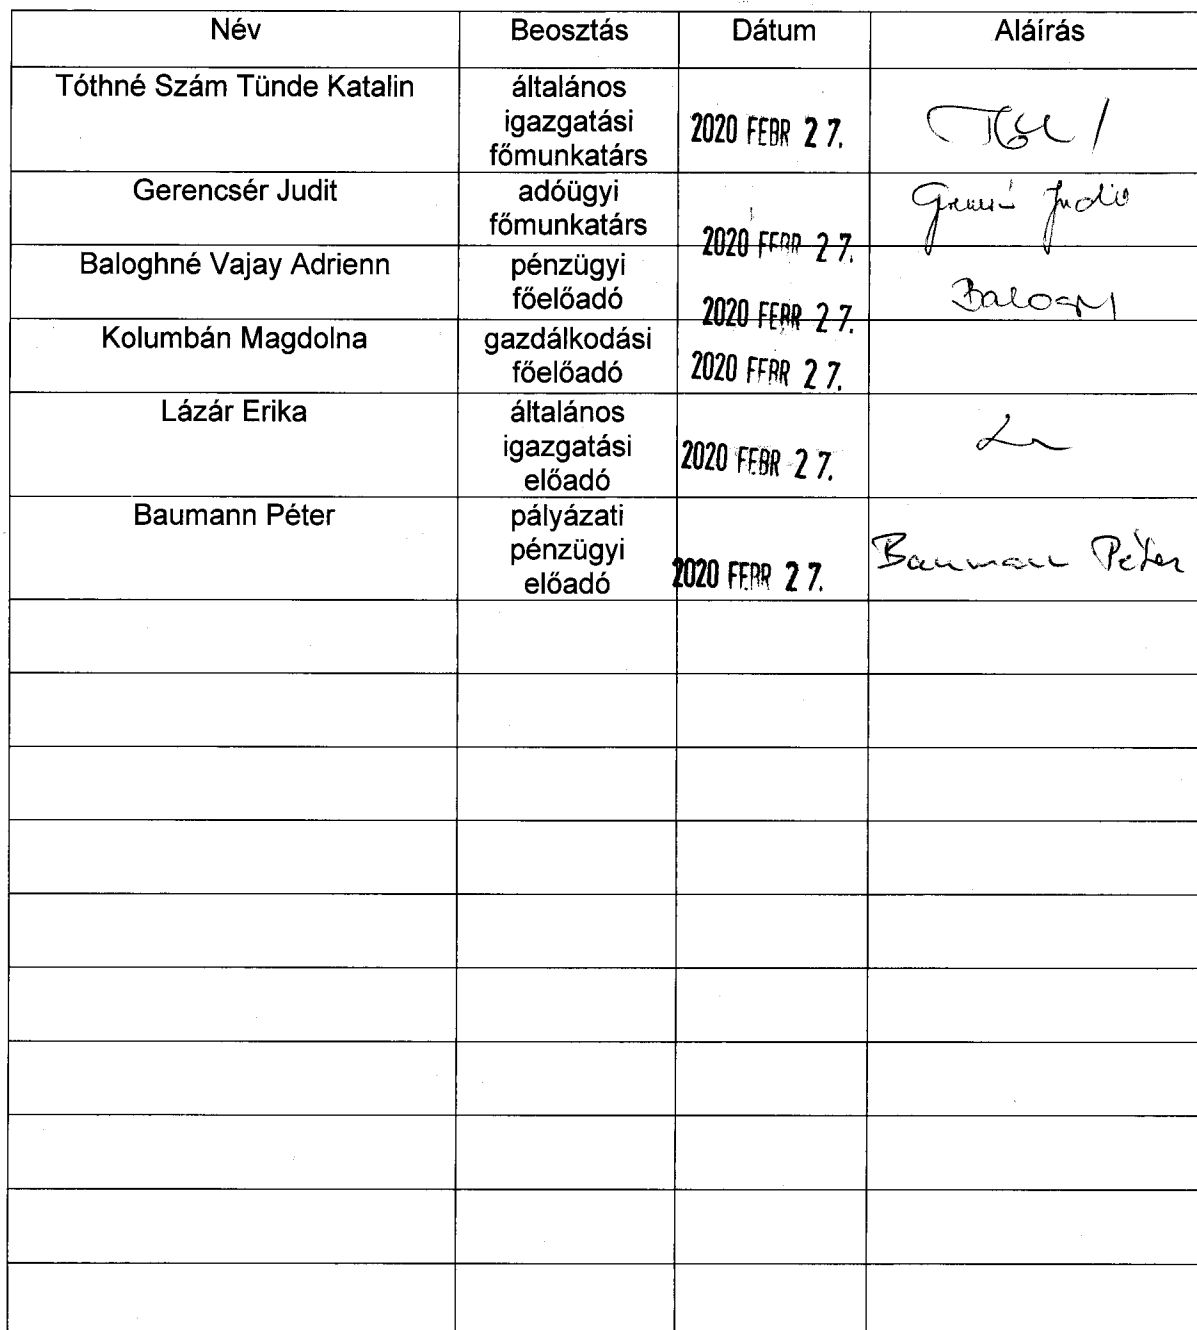 Név Beosztás Dátum Aláírás
Tóthné Szám Tünde Katalin általános
igazgatási
főmunkatárs
2020 FEBR 27.
Gerencsér Judit adóügyi
főmunkatárs
2020 FEBR 27.
Judit
Baloghné Vajay Adrienn pénzügyi
főelőadó
2020 FEBR 27.
Kolumbán Magdolna gazdálkodási
főelőadó
2020 FEBR 27.
Lázár Erika általános
igazgatási
előadó
2020 FEBR 27.
Baumann Péter pályázati
pénzügyi
előadó
2020 FEBR 27.
Baumann Péter